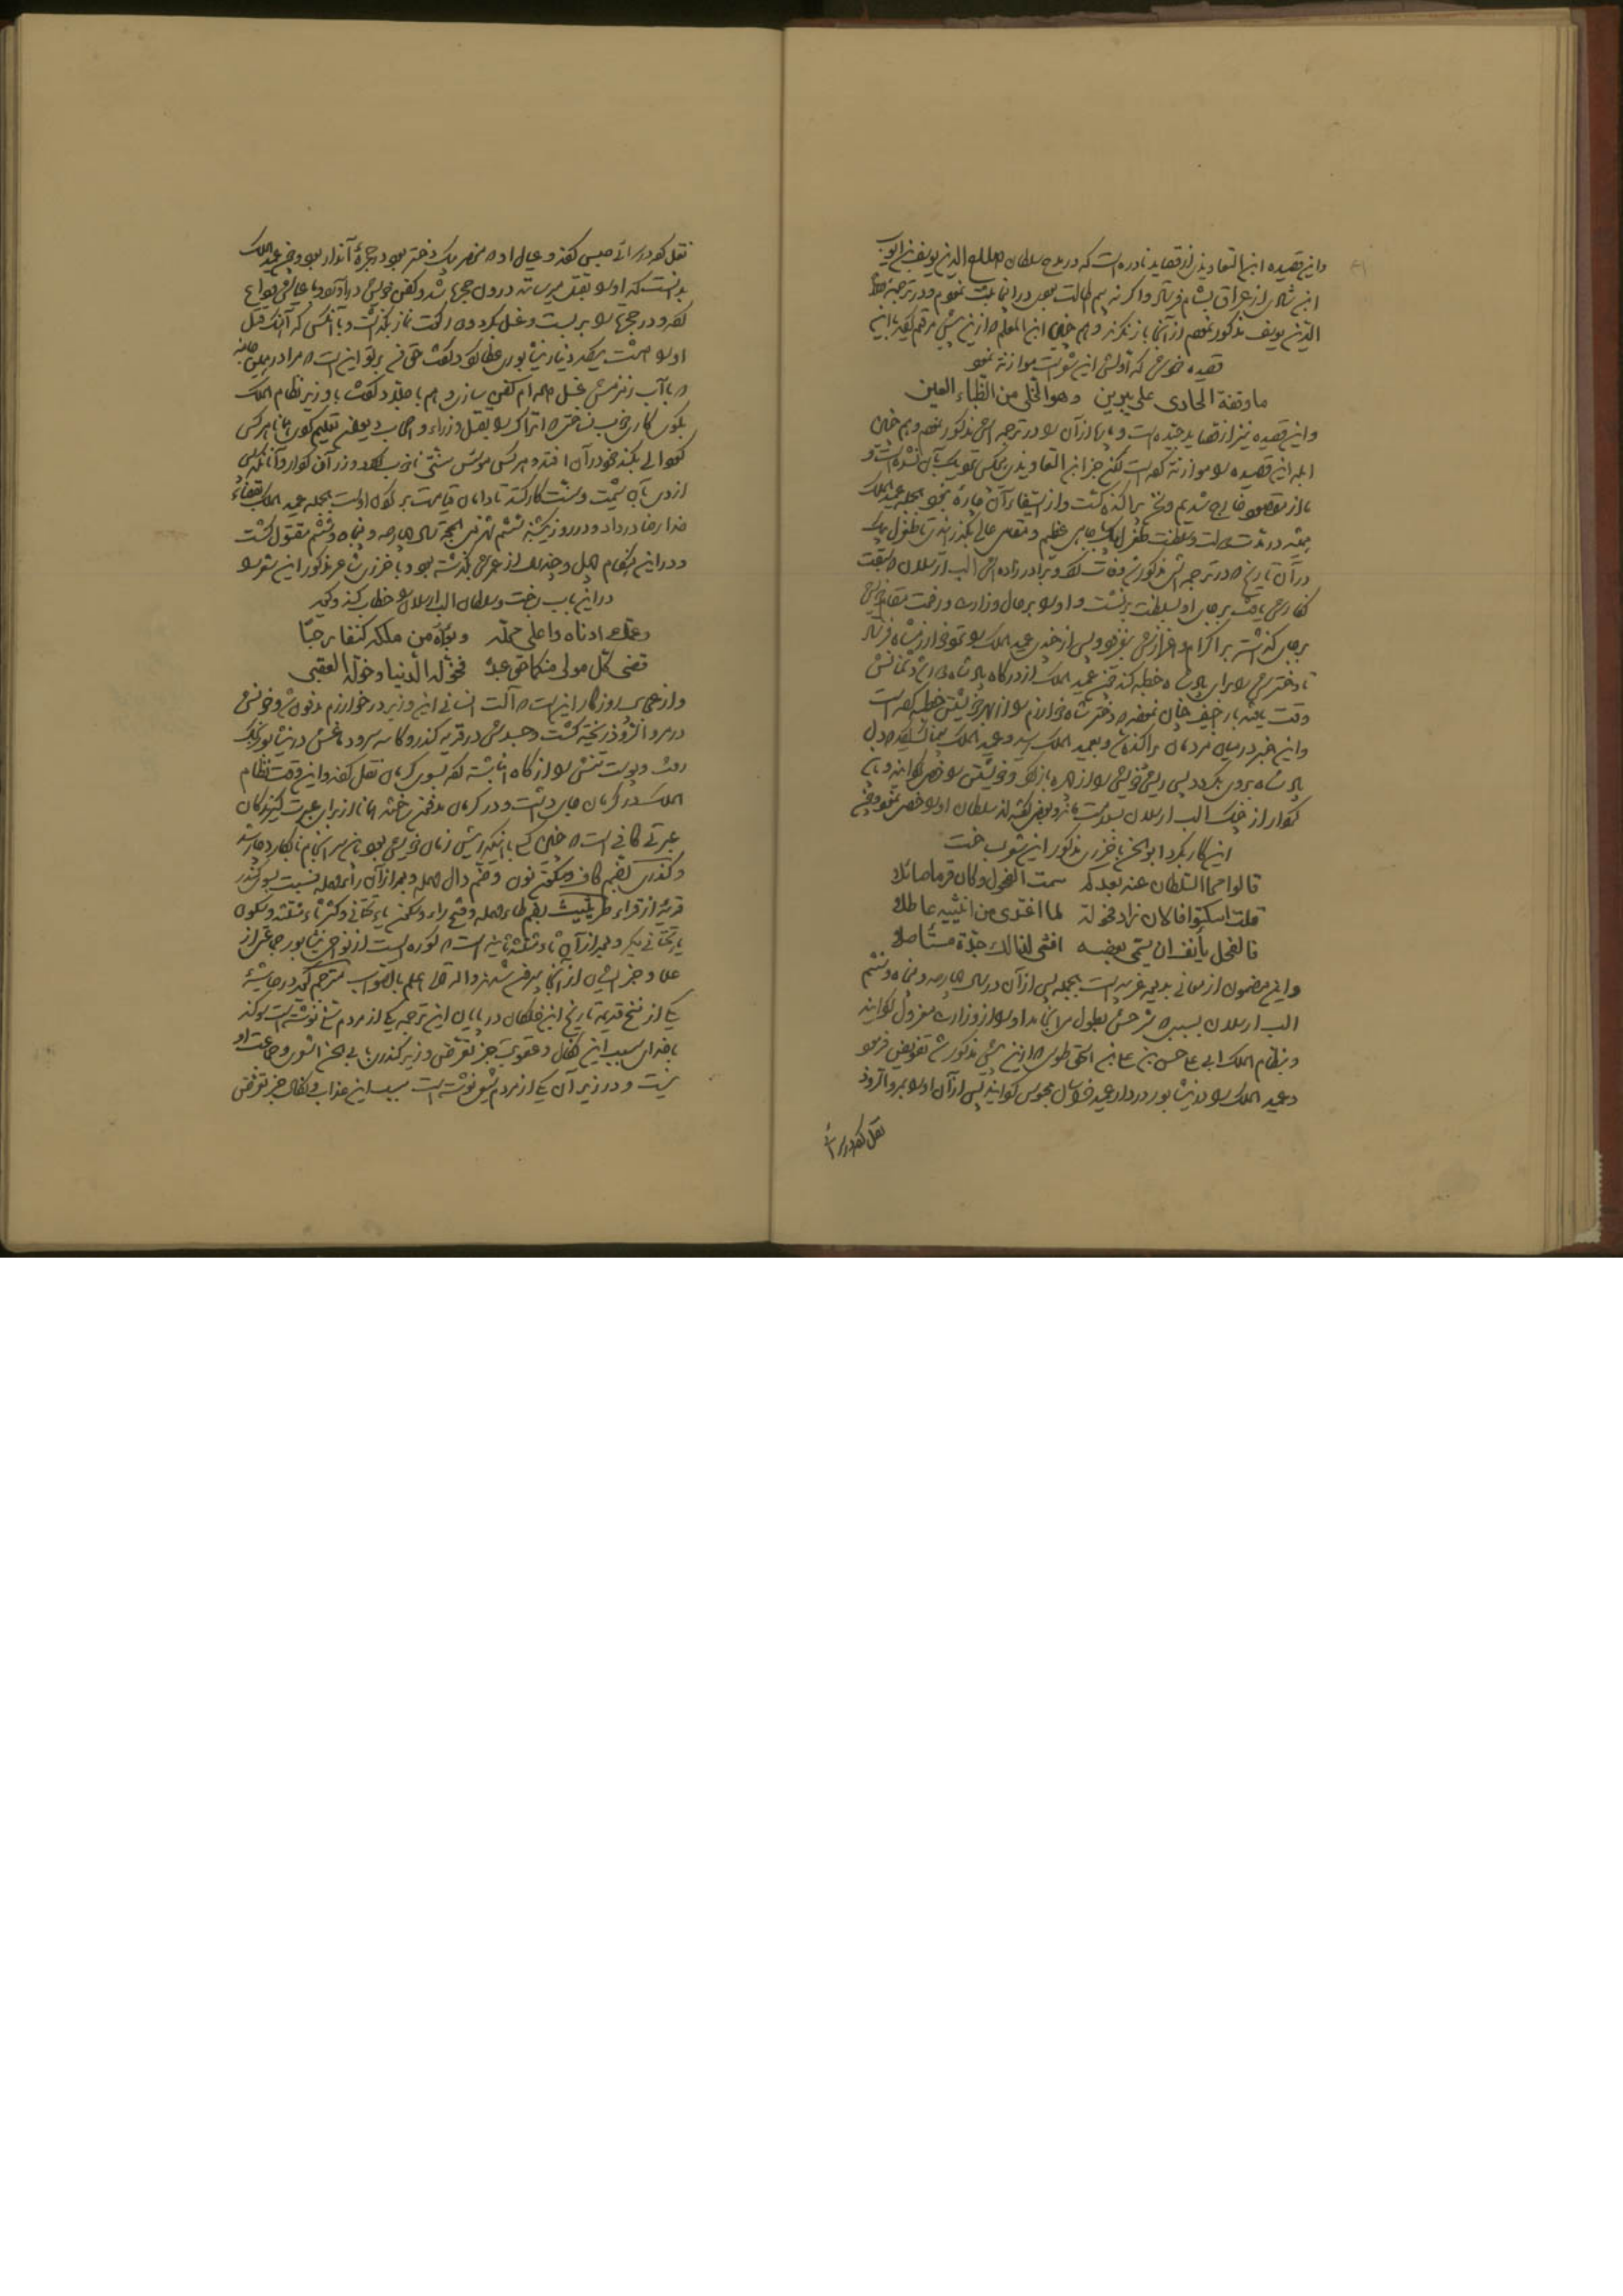 واین قصیده ابن التعاویذی از قصاید نادره است که در مدح سلطان صلاح الدین یوسف بن ایوب
ابن شادی از عراق بشام فرستاد واگر نه بیم طالت بودی در اینجا ثبت نمودم ودر ترجمهٔ صلاح
الدین یوسف مذکور نمودم از آنجا باز نگرند وهم چنین ابن المعلم که از این پیش
قصیده خویش که اولش این شعر است موازنه نموده
ما وقفة الحادی علی یبرین وهو الخلی من الظباء العین
واین قصیده نیز از قصاید جیده است و پاره از آن را در ترجمه اش مذکور نمودم وهم چنین
ابله این قصیده را موازنه کرده است لکن جز ابن التعاویذی هیچکس نزدیک بآن نشده است و
ما از مقصود خارج شدیم وسخن پراکنده گشت واز استیفاء آن چاره نبود بجمله عمید الملک
در مدت دولت وسلطنت طغرل بیک بجاهی عظیم ومقامی عالی بگذرانید تا طغرل بیک
در آن تاریخ که در ترجمه اش مذکور شد وفات کرد وبرادرزاده اش الب ارسلان
بر جای او بسلطنت بنشست و او را بر حال وزارت ورفعت مقام خویش
بر جای گذاشته بر اکرام و اعزازش بیفزود وپس از چندی عمید الملک را نزد خوارزمشاه فرستاد
تا دخترش را برای پادشاه خطبه کند چون عمید الملک از درگاه پادشاه دشمنانش
وقت یافته باراجیف چنان نمودند که دختر شاه خوارزم را از بهر خویشتن خطبه کرده است
واین خبر در میان مردمان پراکنده شد وبعمید الملک رسید وعمید الملک بیمناک شد که دل
پادشاه بروی بگردد پس ریش خویش را از چهره باز کرد وخویشتن را خصی گردانید و باین
کردار از چنگ الب ارسلان بسلامت ماند وبعضی گفته اند سلطان او را خصی نمود وچون
این کار بکرد ابو الحسن باخرزی مذکور این شعر بساخت
قالوا محا السلطان عنه بعدکم سمت الفحول وکان قرما صائلا
قلت اسکتوا فالآن زاد فحولة لما اغتدی من انثییه عاطلا
فالفحل یأنف ان یسمی بعضه انثی لذلک جذه مستأصلا
واین مضمون از معانی بدیعه غریبه است بجمله پس از آن در سال چهارصد وپنجاه وششم
الب ارسلان بسببی که شرحش بطول می انجامد او را از وزارت معزول گردانید
وبنظام الملک ابی علی حسن بن علی بن اسحق طوسی که از این پیش مذکور شد تفویض فرمود
وعمید الملک را در نیشابور در دار عمید خراسان محبوس گردانید پس از آن او را بمرو الروذ
نقل کرد در سرائی
نقل کرد در سرائی حبس کردند و عیال او که منحصر بیک دختر بود در حجرهٔ آن دار بود وچون عمید الملک
بدانست که او را بقتل میرسانند درون حجره شد وکفن خویش در آورد وبا عیالش وداع
کرد ودر حجره را بر بست وغسل کرد ودو رکعت نماز بگذاشت و با آنکس که آهنگ قتل
او را داشت یکصد دینار نیشابوری عطا کرد وگفت حق من بر تو این است که مرا در این جامه
که با آب زمزمش غسل داده ام کفن سازی وهم با جلاد گفت با وزیر نظام الملک
بگوی کاری خوب نساختی که اتراک را بقتل وزراء واصحاب دیوان تعلیم کردی همانا هرکس
گودالی بکند خود در آن افتد وهر کس موسس سنتی ناخوب گردد وزر آن کردار و آنانکه
از وی بآن شیمت وسنت کار کنند تا دامان قیامت بر گردن اوست بجمله عمید الملک بقضاء
خدا رضا در داد ودر روز یکشنبه ششم شهر ذی الحجه سال چهارصد وپنجاه وششم مقتول گشت
ودر این هنگام چهل وچند سال از عمرش گذشته بود وباخرزی شاعر مذکور این شعر را
در این باب بساخت وسلطان الب ارسلان را خطاب کند وگوید
وعمک ادناه واعلی محله وبوأه من ملکه کنفا رحبا
قضی کل مولی منکما حق عبده فخوله الدنیا وخولته العقبی
واز عجایب روزگار این است که آلت انسانی این وزیر در خوارزم مدفون شد وخونش
در مرو الروذ ریخته گشت وجسدش در قریه کندر وکاسه سر ودماغش در نیشابور بخاک
رفت وپوست تنش را از کاه انباشته کرده بسوی کرمان نقل کردند و این وقت نظام
الملک در کرمان جای داشت ودر کرمان مدفون ساختند همانا از برای عبرت گیرندگان
عبرتی کافی است که چنین کسی با اینکه رئیس زمان خویش بود باین سر انجام نابکار دچار شد
وکندری بضم کاف وسکون نون وضم دال مهمله وبعد از آن راء مهمله نسبت بسوی کندر
قریهٔ از قراء طریثیث بضم طاء مهمله وفتح راء وسکون یاء تحتانی وکسر ثاء مثلثه وسکون
یاء تحتانی دیگر وبعد از آن ثاء مثلثه ثانیه است که کوره است از نواحی نیشابور جماعتی از
علما وجز ایشان از آنجا بیرون شدند والله تعالی اعلم بالصواب مترجم گوید در حاشیهٔ
یکی از نسخ قدیمه تاریخ ابن خلکان در پایان این ترجمه یکی از مردم سنی نوشته است سوگند
با خدای سبب این نکال وعقوبت جز تعرض وزیر کندری بابی الحسن اشعری وجماعت او
نیست ودر زیر آن یکی از مردم شیعی نوشته است سبب این عذاب ونکال جز تعرض